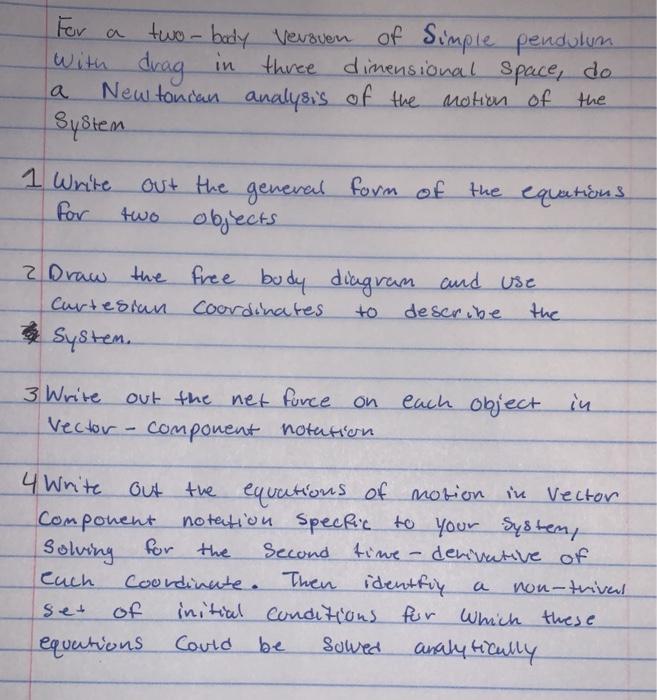 For a two-body version of Simple pendulum
with drag in three dimensional space, do
a Newtonian analysis of the motion of the
System
1 Write out the general form of the equations
for two objects
2 Draw the free body diagram and use
Cartesian coordinates to describe the
System.
3 Write out the net force on each object in
Vector-component notation
4 Write out the equations of motion in Vector
Component notation specific to your System,
Solving for the Second time-derivative of
each Coordinate. Then identfiy a non-trival
set of initial conditions for which these
equations Could be Solved analytically